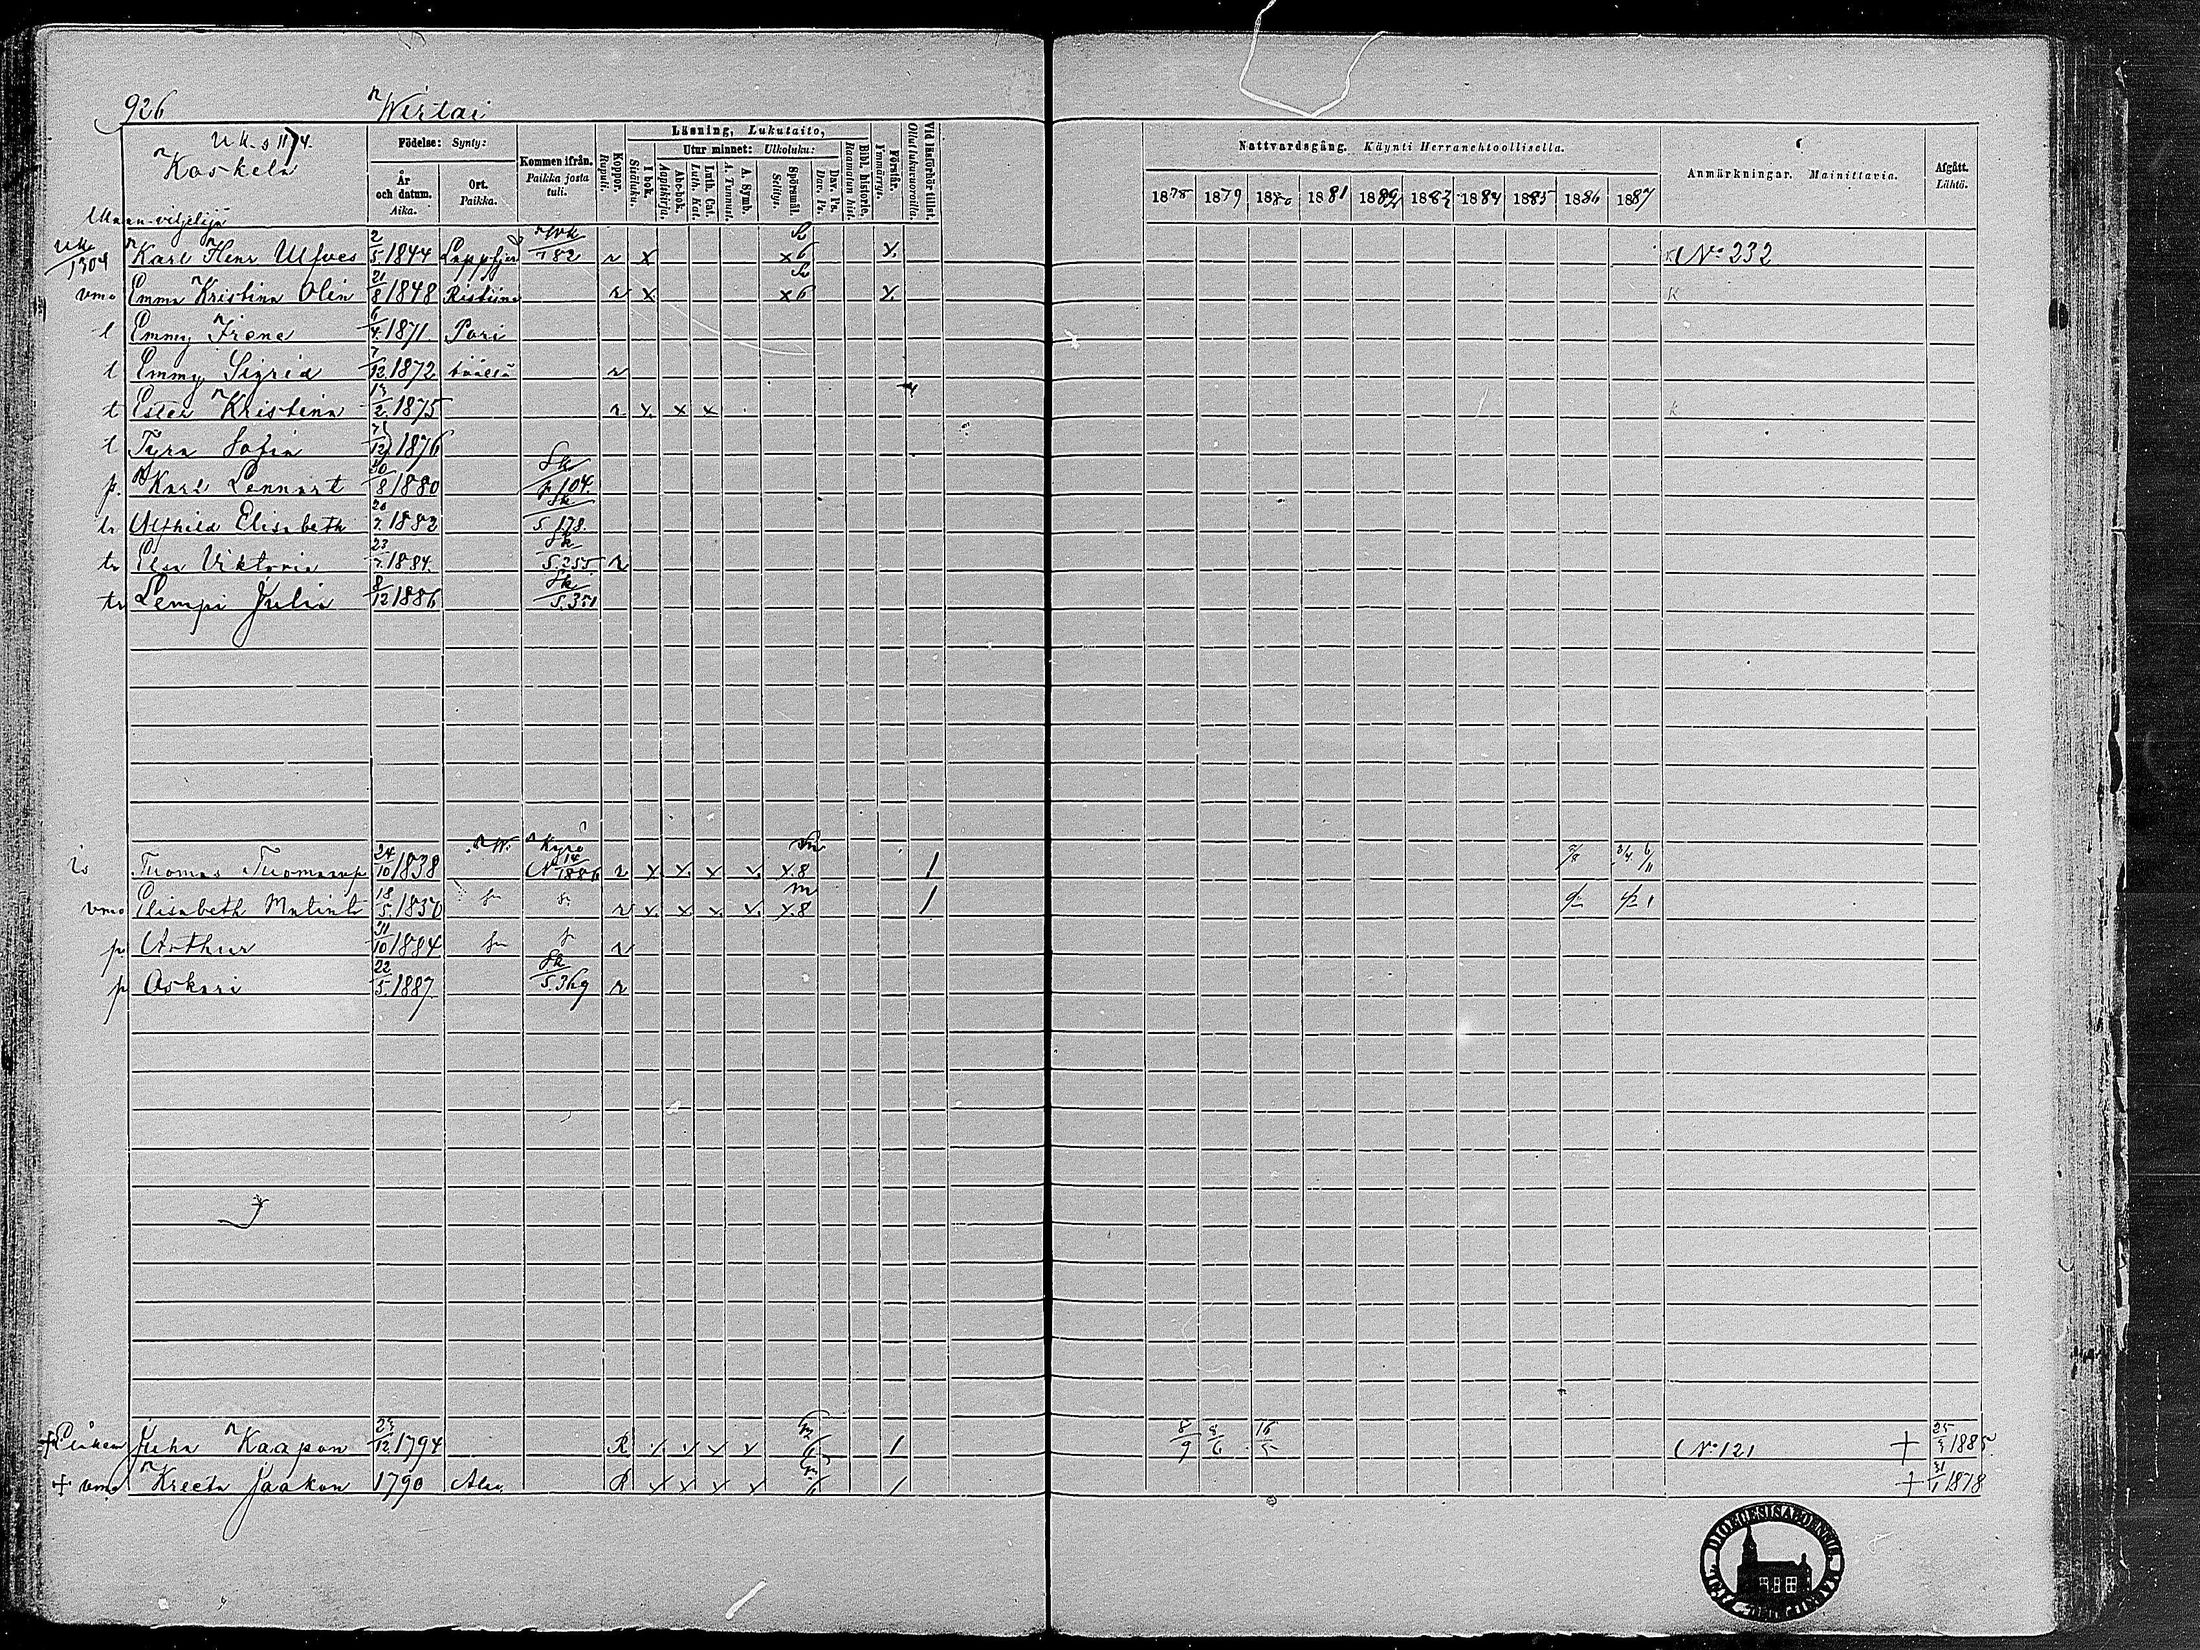 926 Wirtai
Uk. s 1174.
Koskela
Födelse: Synty:
År och datum. Aika.
Ort. Paikka.
Kommen ifrån. Paikka josta tuli.
Koppor. Rupuli.
Läsning, Lukutaito,
I bok. Sisäluku.
Utur minnet: Ulkoluku:
Abc-bok. Aapiskirja.
Luth. Cat. Luth. Kat.
A. Symb. A. Tunnust.
Spörsmål. Selitys.
Dav. Ps. Dav. Ps.
Bibl. historie. Raamatun hist.
Förstår. Ymmärrys.
Vid läsförhör tillst. Ollut lukuvuoroilla.
Nattvardsgång. Käynti Herranehtoollisella.
1878 1879 1880 1881 1882 1883 1884 1885 1886 1887
Anmärkningar. Mainittavia.
Afgått. Lähtö.
Maan viljelijä
Uk. 1304 Karl Henr Ulfves 2/5 1844 Lappfjerd 182 r x x 6 x N:o 232
vmo Emma Kristina Olin 21/8 1848 Ristiina r x x 6 x K
t Emmy Irene 6/4 1871 Pori
t Emmy Sigrid 7/12 1872 täällä r
t Ester Kristina 2. 1875 r x x x k
t Tyra Sofia 12 1876
p. Karl Lennart 30/8 1880 Sk s. 104.
tr Alfhild Elisabeth 20/7. 1882 Sk S. 178.
tr Elsa Viktoria 23/7. 1884. Sk S. 255 r
tr Lempi Julia 8/12 1886 Sk S. 351
is Thomas Thomasup 24/10 1838 W. Kyrö N 14/1886 r x x x x x 8 1
vmo Elisabeth Matint 18/5. 1850 r x x x x x 8 1
p Arthur 31/10 1884 r
p Oskari 22/5. 1887. Sk S. 369 r
+ Juha Kaapon 12 1794 R x x x x 6 1 8/9 8/6 16/5 N:o 121 + 25/ 1885.
+ vmo Kreeta Jaakon 1790 R x x x x 6 1 + 31/1 1878